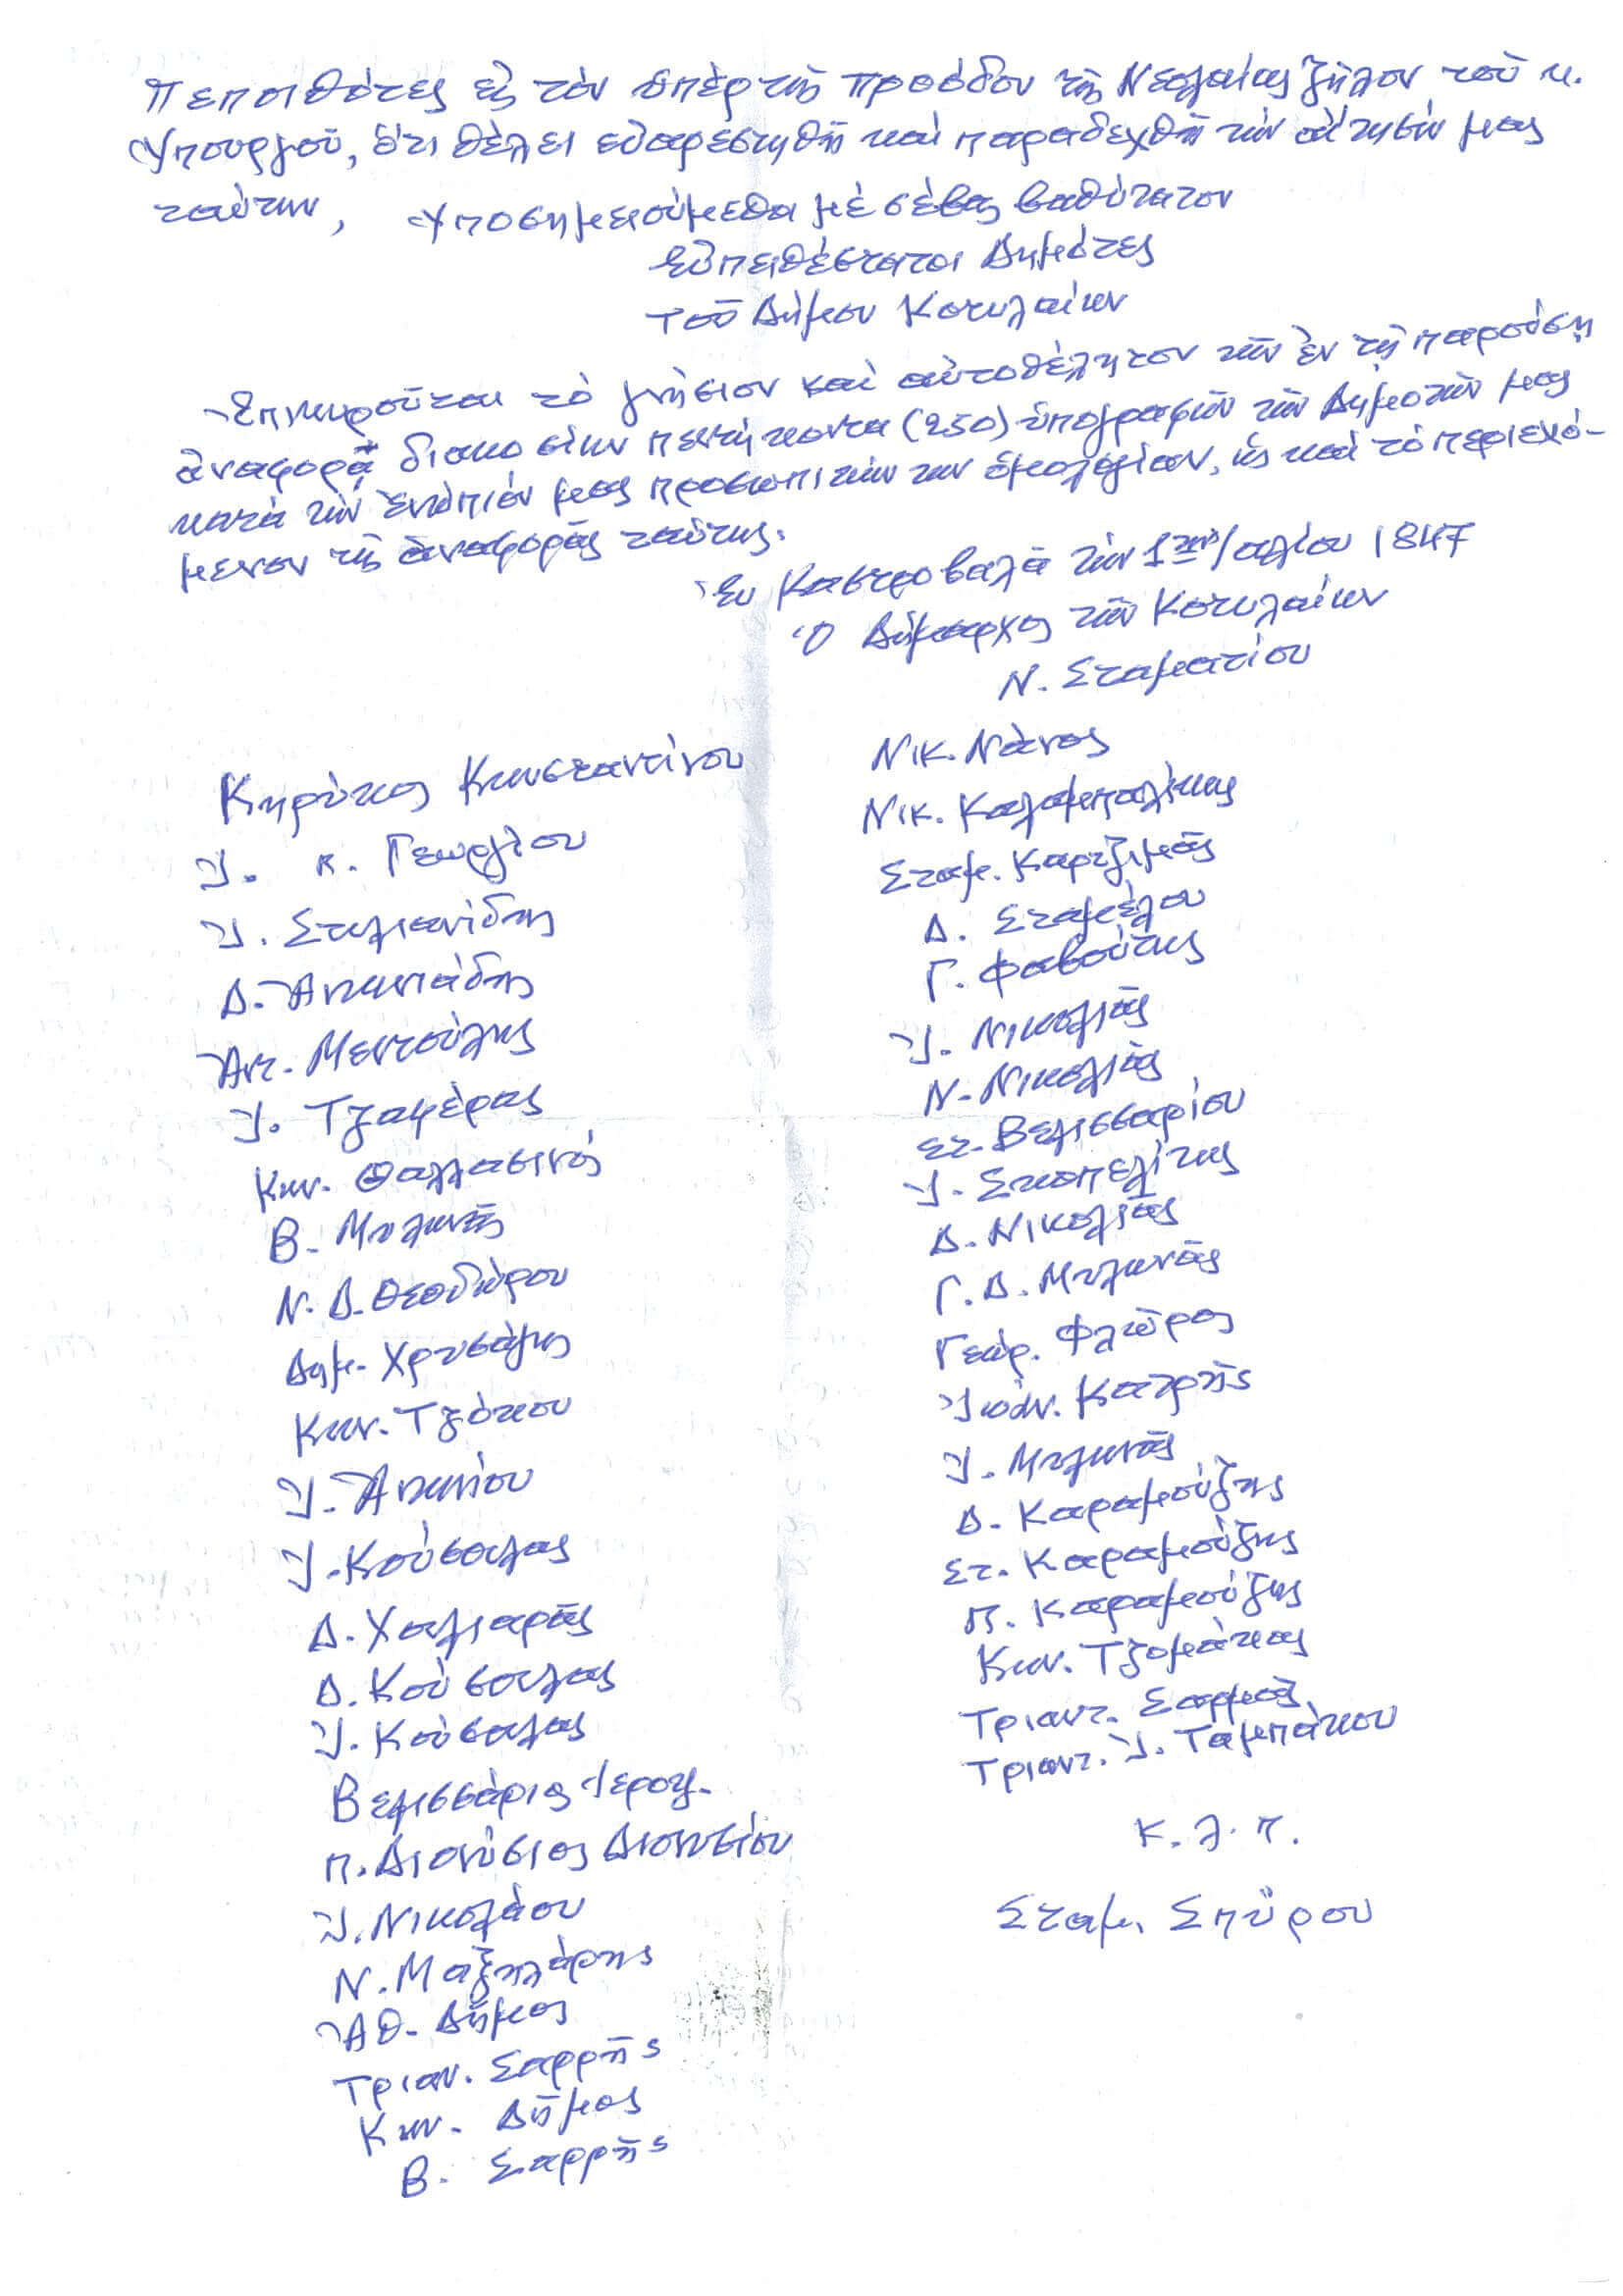 Πεποιθότες εἰς τὸν ὑπὲρ τῆς προόδου τῆς Νεολαίας ζῆλον τοῦ κ.
Ὑπουργοῦ, ὅτι θέλει εὐαρεστηθῆ καὶ παραδεχθῆ τὴν αἴτησίν μας
ταύτην, Ὑποσημειούμεθα μὲ σέβας βαθύτατον
Εὐπειθέστατοι Δημότες
Τοῦ Δήμου Κοτυλαίων
Ἐπικυροῦται τὸ γνήσιον καὶ αὐτοθέλητον τῶν ἐν τῇ παρούσῃ
ἀναφορᾷ διακοσίων πεντήκοντα (250) ὑπογραφῶν τῶν Δημοτῶν μας
κατὰ τὴν ἐνώπιόν μας προσωπικὴν των ὁμολογίαν, ὡς καὶ τὸ περιεχό-
μενον τῆς ἀναφορᾶς ταύτης.
Ἐν Καστροβαλᾶ τὴν 1ην Ἰουλίου 1847
Ὁ Δήμαρχος τῶν Κοτυλαίων
Ν. Σταματίου
Κηρύκος Κωνσταντίνου
Ἰ. Κ. Γεωργίου
Ἰ. Στυλιανίδης
Δ. Ἀνανιάδης
Ἀντ. Μεντούλης
Ἰ. Τζαφέρας
Κων. Θαλλασινός
Β. Μυλωνᾶς
Ν. Δ. Θεοδώρου
Δημ. Χρυσάφης
Κων. Τζόκου
Ἰ. Ἀνανίου
Ἰ. Κούσουλας
Δ. Χαλιαρᾶς
Δ. Κούσουλας
Ἰ. Κούσουλας
Βελισσάριος Ἱερομ.
π. Διονύσιος Διονυσίου
Ἰ. Νικολάου
Ν. Μαξηλάρης
Ἀθ. Δῆμος
Τριαν. Σαρρῆς
Κων. Δῆμος
Β. Σαρρῆς
Νικ. Νάνος
Νικ. Καλαμπαλίκης
Σταμ. Καρτζιμᾶς
Δ. Σταμέλου
Γ. Φαβούτης
Ἰ. Νικολιᾶς
Ν. Νικολιᾶς
Στ. Βελισσαρίου
Ἰ. Σκοπελίτης
Δ. Νικολιᾶς
Γ. Δ. Μυλωνᾶς
Γεώρ. Φλῶρος
Ἰωάν. Κατρῆς
Ἰ. Μυλωνᾶς
Δ. Καραμούζης
Στ. Καραμούζης
Π. Καραμούζης
Κων. Τζομάκας
Τριαντ. Σαρμᾶς
Τριαντ. Ἰ. Ταμπάκου
Κ. λ. π.
Σταμ. Σπύρου